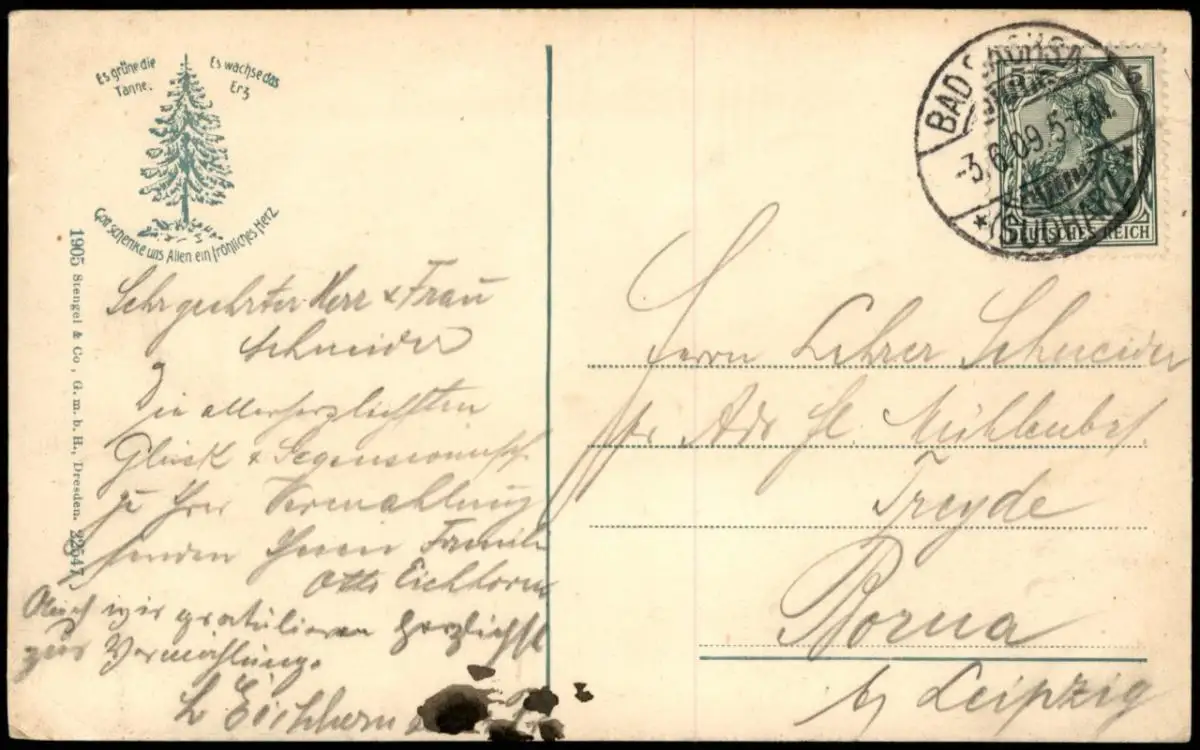 Es grüne die Tanne.
Es wachse das Erz
Gott schenke uns Allen ein fröhliches Herz
1905 Stengel & Co., G. m. b. H., Dresden. 22547
Sehr geehrter Herr & Frau
Schneider
Die allerherzlichsten
Glück & Segenswünsch
zu Ihrer Vermählung
senden Ihnen Famili
Otto Eichhorn
Auch wir gratulieren herzlichst
zur Vermählung.
L Eichhorn
BAD SACHSA
-3.6.09 5-6N.
* (SÜDHARZ) *
5 5
DEUTSCHES REICH
Herrn Lehrer Schneider
pr Adr Fl. Mühlenbes
Treyde
Borna
b/ Leipzig